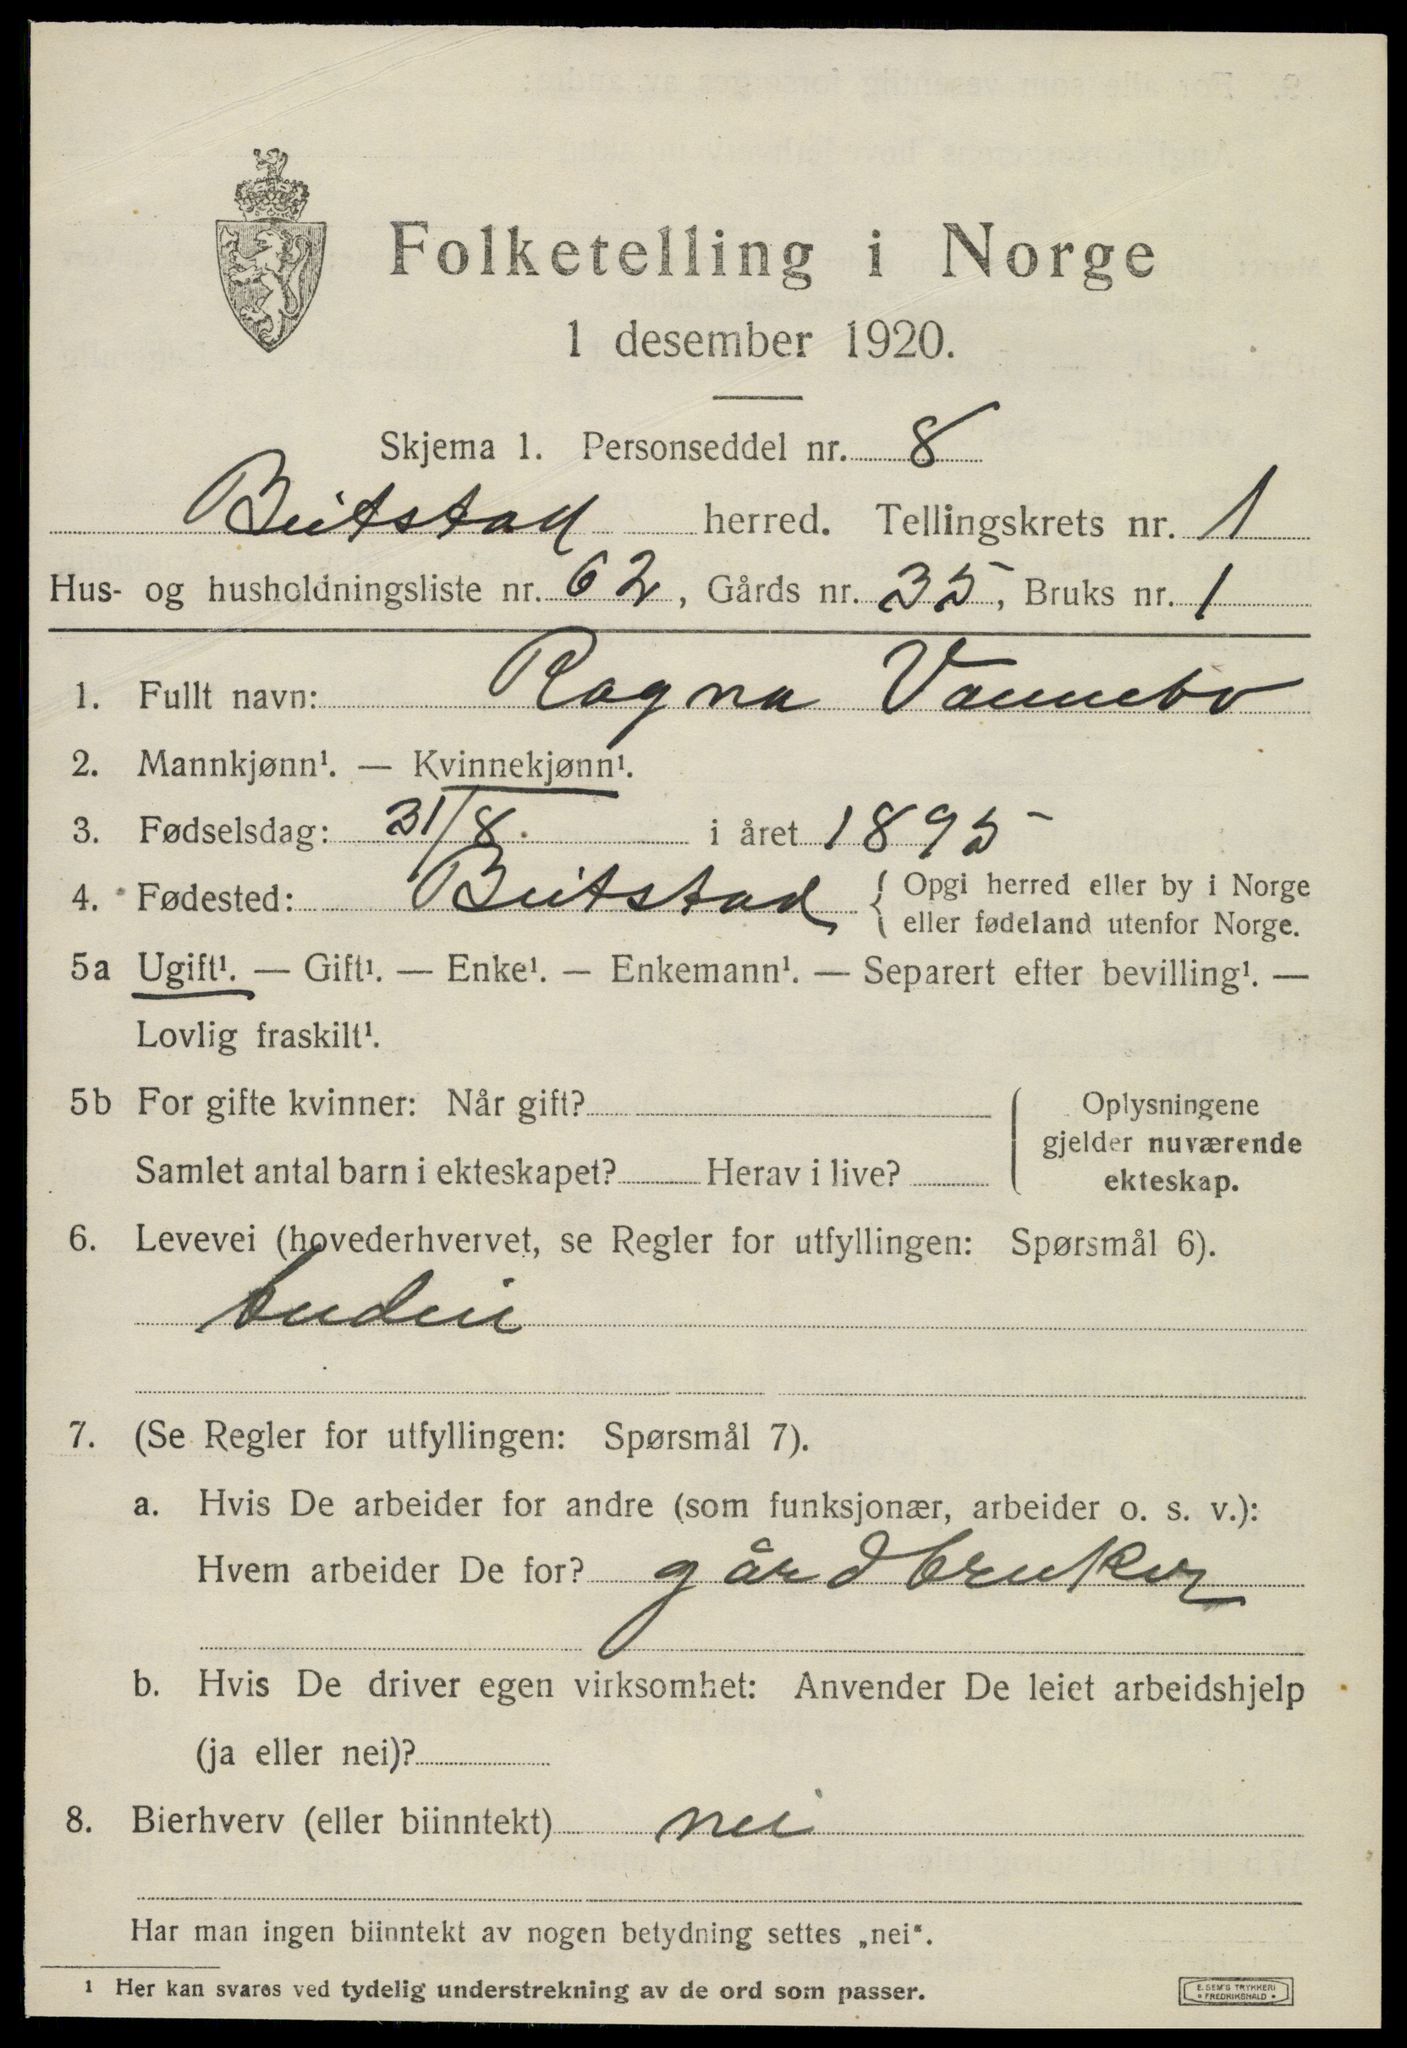 Folketelling i Norge
1 desember 1920.
Skjema 1. Personseddel nr. 8
Beitstad herred. Tellingskrets nr. 1
Hus- og husholdningsliste nr. 62, Gårds nr. 35, Bruks nr. 1
1. Fullt navn: Ragna Vannebo
2. Mannkjønn¹. — Kvinnekjønn¹.
3. Fødselsdag: 31/8. i året 1895
4. Fødested: Beitstad { Opgi herred eller by i Norge
eller fødeland utenfor Norge.
5a Ugift¹. — Gift¹. — Enke¹. — Enkemann¹. — Separert efter bevilling¹. —
Lovlig fraskilt¹.
5b For gifte kvinner: Når gift?
Samlet antal barn i ekteskapet? Herav i live?
Oplysningene
gjelder nuværende
ekteskap.
6. Levevei (hovederhvervet, se Regler for utfyllingen: Spørsmål 6).
budeie
7. (Se Regler for utfyllingen: Spørsmål 7).
a. Hvis De arbeider for andre (som funksjonær, arbeider o. s. v.):
Hvem arbeider De for? gårdbruker
b. Hvis De driver egen virksomhet: Anvender De leiet arbeidshjelp
(ja eller nei)?
8. Bierhverv (eller biinntekt) nei
Har man ingen biinntekt av nogen betydning settes „nei“.
1 Her kan svares ved tydelig understrekning av de ord som passer.
E. SEM'S TRYKKERI
• FREDRIKSHALD •